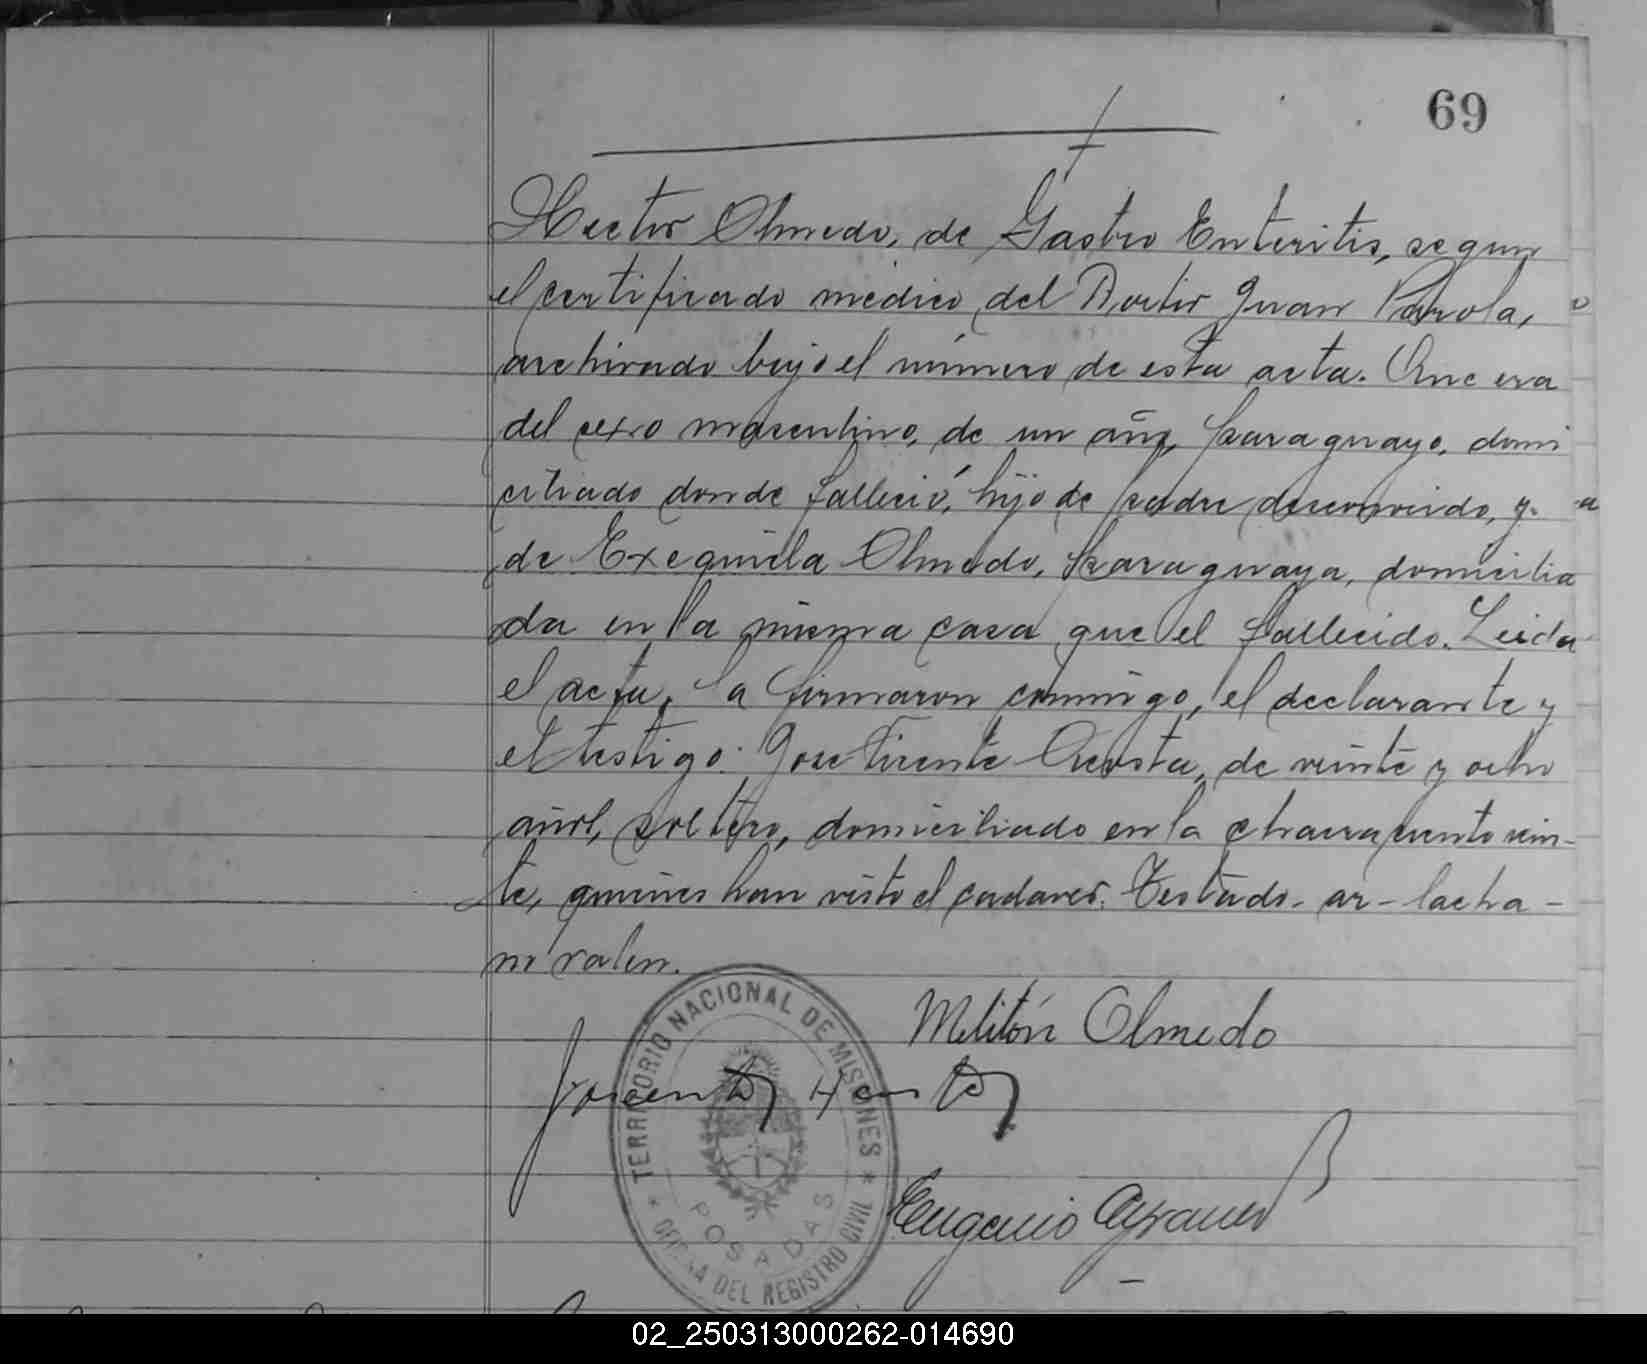 69
Hector Olmedo, de Gastro Enteritis, segun
el certificado médico del Doctor Juan Parola,
archivado bajo el número de esta acta. Que era
del sexo masculino, de un año, paraguayo, domi
ciliado donde falleció, hijo de padre desconocido, y
de Exequiela Olmedo, paraguaya, domicilia
da en la misma casa que el fallecido. Leida
el acta, la firmaron conmigo, el declarante y
el testigo: Jose Vicente Acosta, de veinte y ocho
años, soltero, domiciliado en la chacra ciento vein-
te, quienes han visto el cadaver. Testado. ar - lacha -
no valen.
Melitón Olmedo
Eugenio
TERRITORIO NACIONAL DE MISIONES
POSADAS
OFICINA DEL REGISTRO CIVIL
02_250313000262-014690